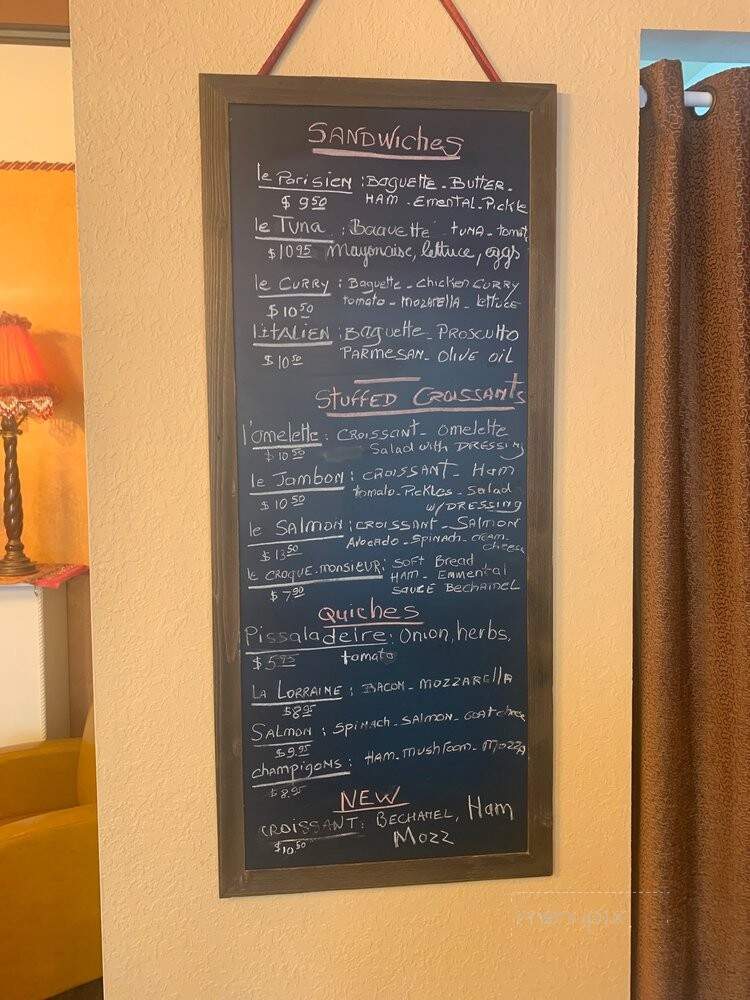 SANDWiches
le Parisien : Baguette - Butter -
$ 9 50 HAM - Emental - Pickle
le Tuna : Baguette tuna - tomat
$ 10 95 Mayonaise, lettuce, eggs
le Curry : Baguette - chicken Curry
$ 10 50 tomato - Mozarella - lettuce
L'itALIEN : Baguette - Proscutto
$ 10 50 Parmesan - olive oil
Stuffed Croissants
l'omelette : Croissant - omelette
$ 10 50 Salad with DRESSING
le Jambon : CROISSANT - Ham
$ 10 50 tomato - Pickles - Salad
w/ DRESSING
le SALMON : CROISSANT - SALMON
$ 13 50 Avocado - Spinash - cream -
cheese
le croque-monsieur : Soft Bread
$ 7 90 HAM - Emmental
SAUCE Bechamel
Quiches
Pissaladeire : Onion, herbs,
$ 5 95 tomato
LA LORRAINE : BACON - MOZZARELLA
$ 8 95
SALMON : Spinash - SALMON - GOAT cheese
$ 9.95
champigons : HAM - Mushroom - MOZZA
$ 8.95
NEW
CROISSANT : BECHAMEL, Ham
$ 10 50 Mozz